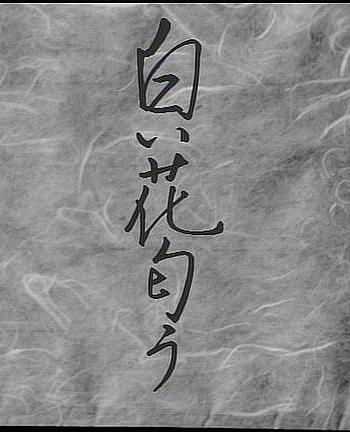 白い花匂う